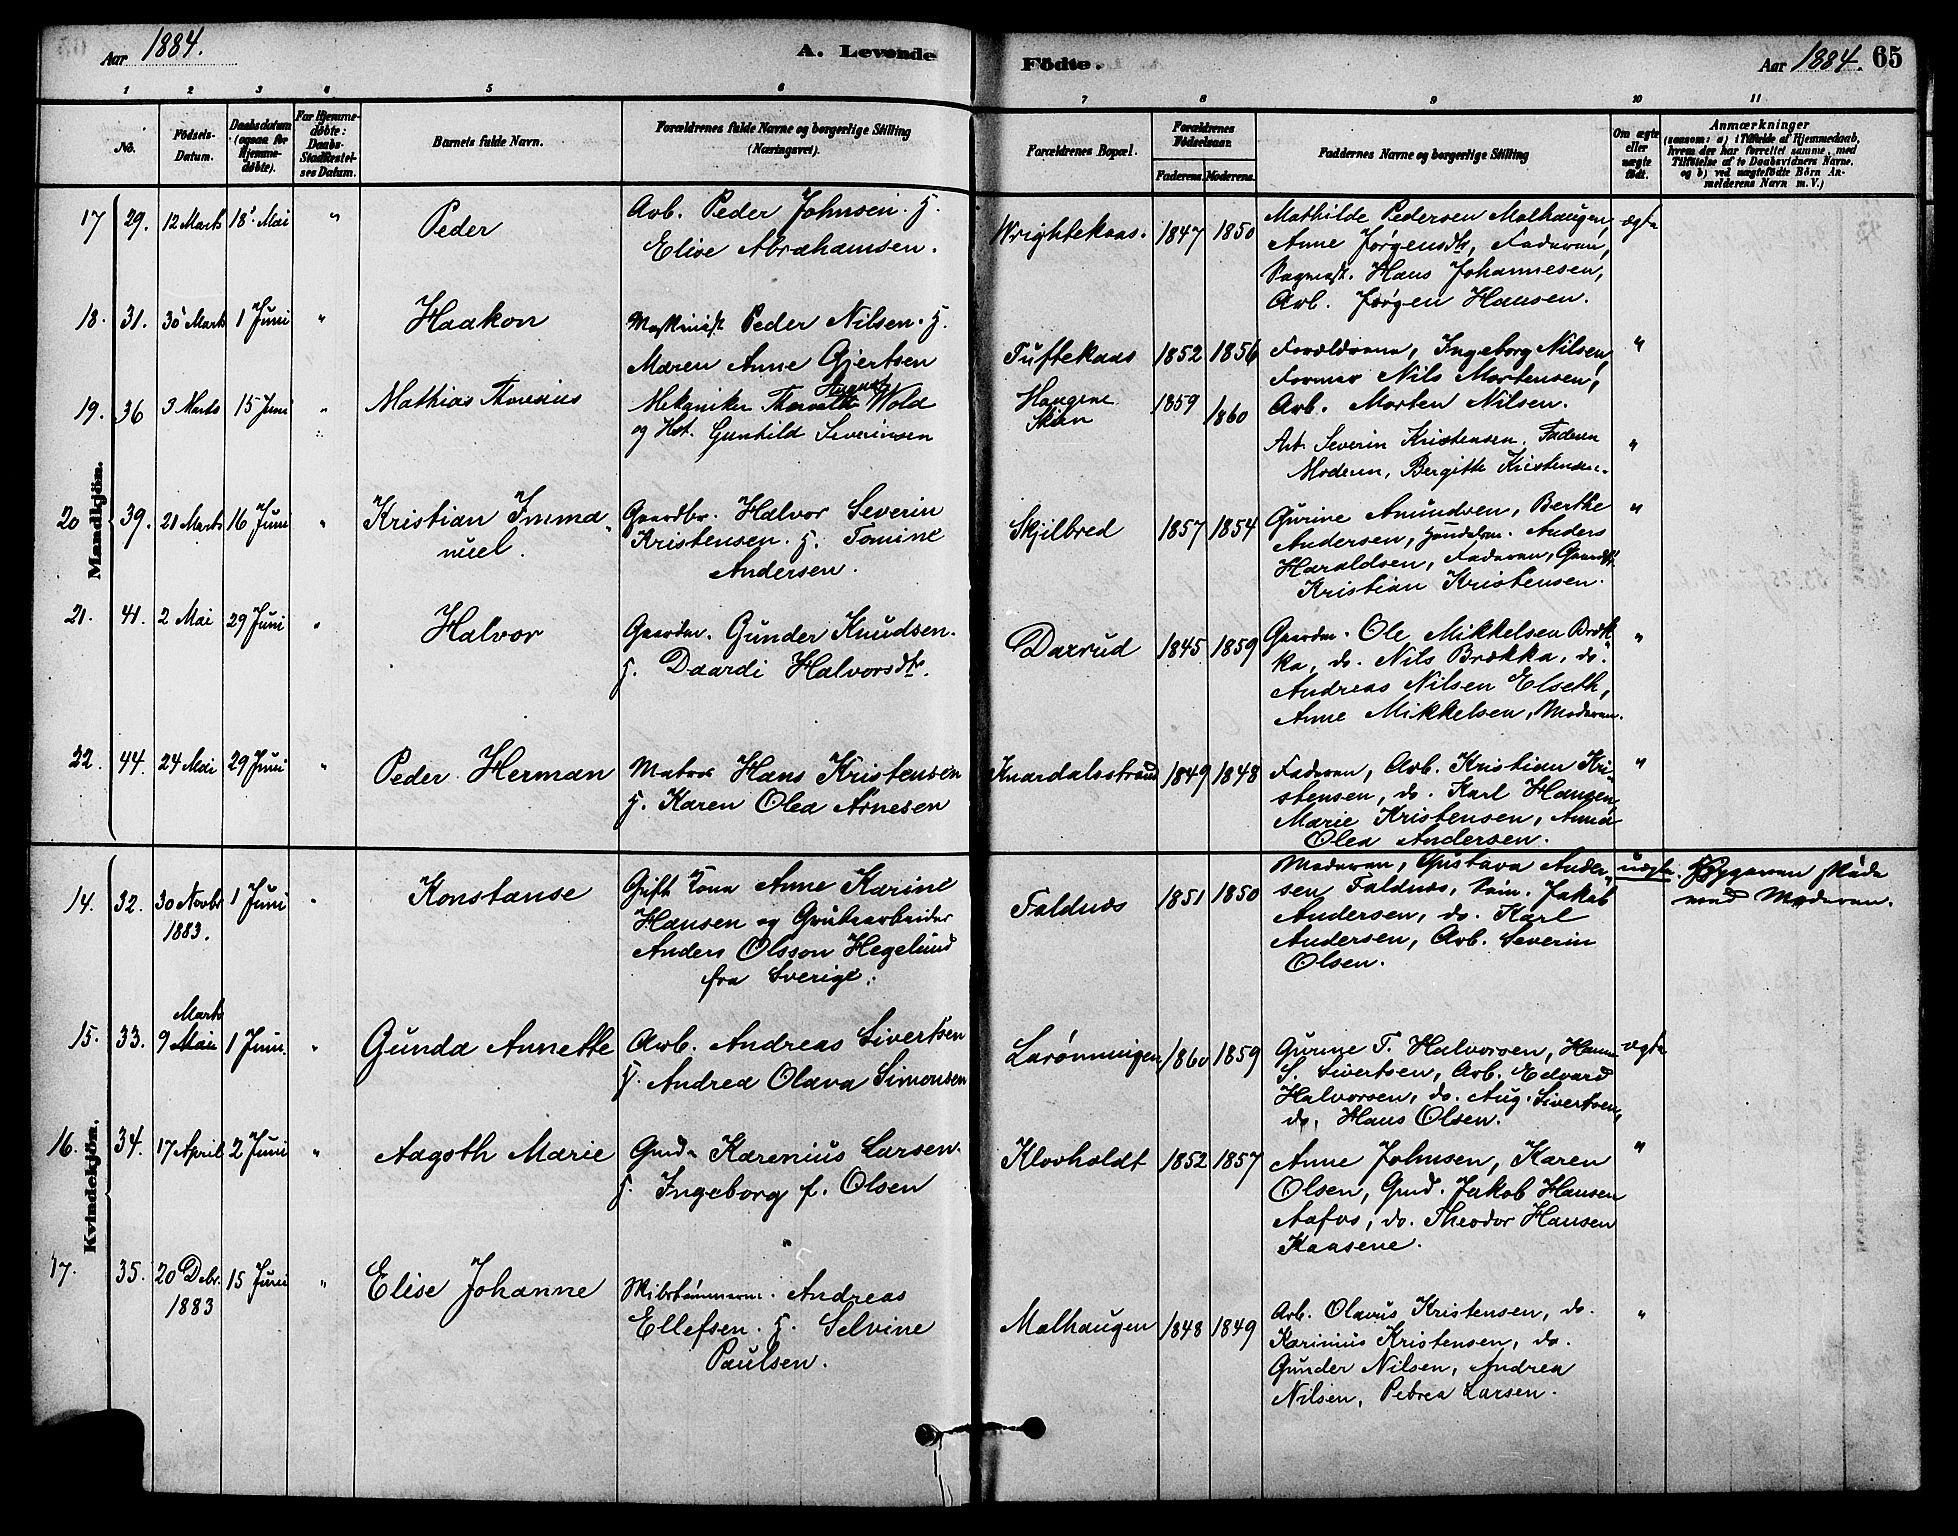 Aar 1884. A. Levende Födte. Aar 1884. 65
1 2 3 4 5 6 7 8 9 10 11
No.
Födsels-Datum.
Daabsdatum (ogsaa for Hjemme-döbte).
For Hjemme-döbte: Daabs-Stadfæstel-ses Datum.
Barnets fulde Navn.
Forældrenes fulde Navne og borgerlige Stilling (Næringsvei).
Forældrenes Bopæl.
Forældrenes Födselsaar.
Faderens. Moderens.
Faddernes Navne og borgerlige Stilling
Om ægte eller uægte födt.
Anmærkninger
(saasom: a) i Tilfælde af Hjemmedaab,
hvem der har forrettet samme, med
Tilföielse af to Daabsvidners Navne,
og b) ved uægtefödte Börn An-
melderens Navn m. V.)
Mandkjön.
17 29. 12 Marts 18 Mai " Peder
Arb. Peder Johnsen. H.
Elise Abrahamsen.
Wrightekaas. 1847 1850
Mathilde Pedersen Malhaugen,
Anne Jørgensdt, Faderen,
Bagmest. Hans Johannesen,
Arb. Jørgen Hansen.
ægte
18. 31. 30 Marts 1 Juni " Haakon
Maskinist Peder Nilsen. H.
Maren Anne Gjertsen
Tuftekaas 1852 1856
Forældrene, Ingeborg Nilsen,
Former Nils Mortensen,
Arb. Morten Nilsen.
"
19. 36 3 Marts 15 Juni " Mathias Thorsius
Mekaniker Thorvald Wold
og Hst. Gunhild Severinsen
Haugene
Skien
1859 1860
Arb. Severin Kristensen. Faderen
Moderen, Bergitte Kristensen.
"
20 39. 21 Marts 16 Juni " Kristian Imma-
nuel.
Gaardbr. Halvor Severin
Kristensen. H. Tomine
Andersen.
Skjilbred 1857 1854
Gurine Amundsen, Berthe
Andersen, Anders
Haraldsen, Faderen, Gaardbr.
Kristian Kristensen.
"
21. 41. 2 Mai 29 Juni " Halvor
Gaardm. Gunder Knudsen.
H. Daardi Halvorsdtr.
Daxrud 1845 1859
Gaardm. Ole Mikkelsen Bræk-
ka, do. Nils Brækka, do.
Andreas Nilsen Elseth,
Anne Mikkelsen, Moderen.
"
22. 44. 24 Mai 29 Juni " Peder Herman
Matros Hans Kristensen
H. Karen Olea Arnesen
Knardalsstrand 1849 1848
Faderen, Arb. Kristian Kri-
stensen, do. Karl Haugen,
Marie Kristensen, Anna
Olea Andersen.
"
Kvindekjön.
14. 32. 30 Novbr 1883. 1 Juni " Konstanse
Gift Kone Anne Karine
Hansen og Grubearbeider
Anders Olsson Hegelund
fra Sverige.
Faldnæs 1851 1850
Moderen, Gustava Ander-
sen Faldnæs, Jakob
Andersen, do. Karl
Andersen, Arb. Severin
Olsen.
uægte. Byggeren skede
med Moderen.
15. 33. 9 Marts Mai 1 Juni. " Gunda Annette
Arb. Andreas Sivertsen
H. Andrea Olava Simonsen
Larønningen 1860 1859
Gurine T. Halvorsen, Hanna
S. Sivertsen, Arb. Edvard
Halvorsen, do. Aug. Sivertsen,
do. Hans Olsen.
ægte
16. 34. 17 April 2 Juni " Aagoth Marie
Gmd. Karenius Larsen.
H. Ingeborg f. Olsen
Klovholdt 1852 1857
Anne Johnsen, Karen
Olsen, Gmd. Jakob Hansen
Aafos, do. Theodor Hansen
Kaasene.
"
17. 35. 20 Debr. 1883 15 Juni " Elise Johanne
Skibstømmerm. Andreas
Ellefsen. H. Selvine
Paulsen.
Malhaugen 1848 1849
Arb. Olavus Kristensen, do.
Karinius Kristensen, do.
Gunder Nilsen, Andrea
Nilsen, Petrea Larsen.
"